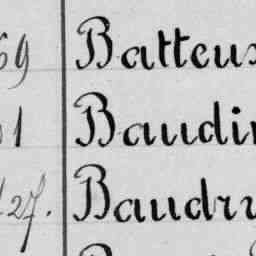 69 Batteux
1 Baudin
27. Baudry